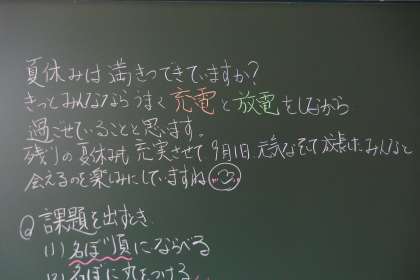 夏休みは満きつできていますか?
きっとみんなならうまく充電と放電をしながら
過ごせていることと思います。
残りの夏休みも充実させて9月1日、元気な姿で みんなと
会えるのを楽しみにしていますね
Q 課題を出すとき、
(1) 名ぼ順にならべる
(2) 名ぼに丸をつける